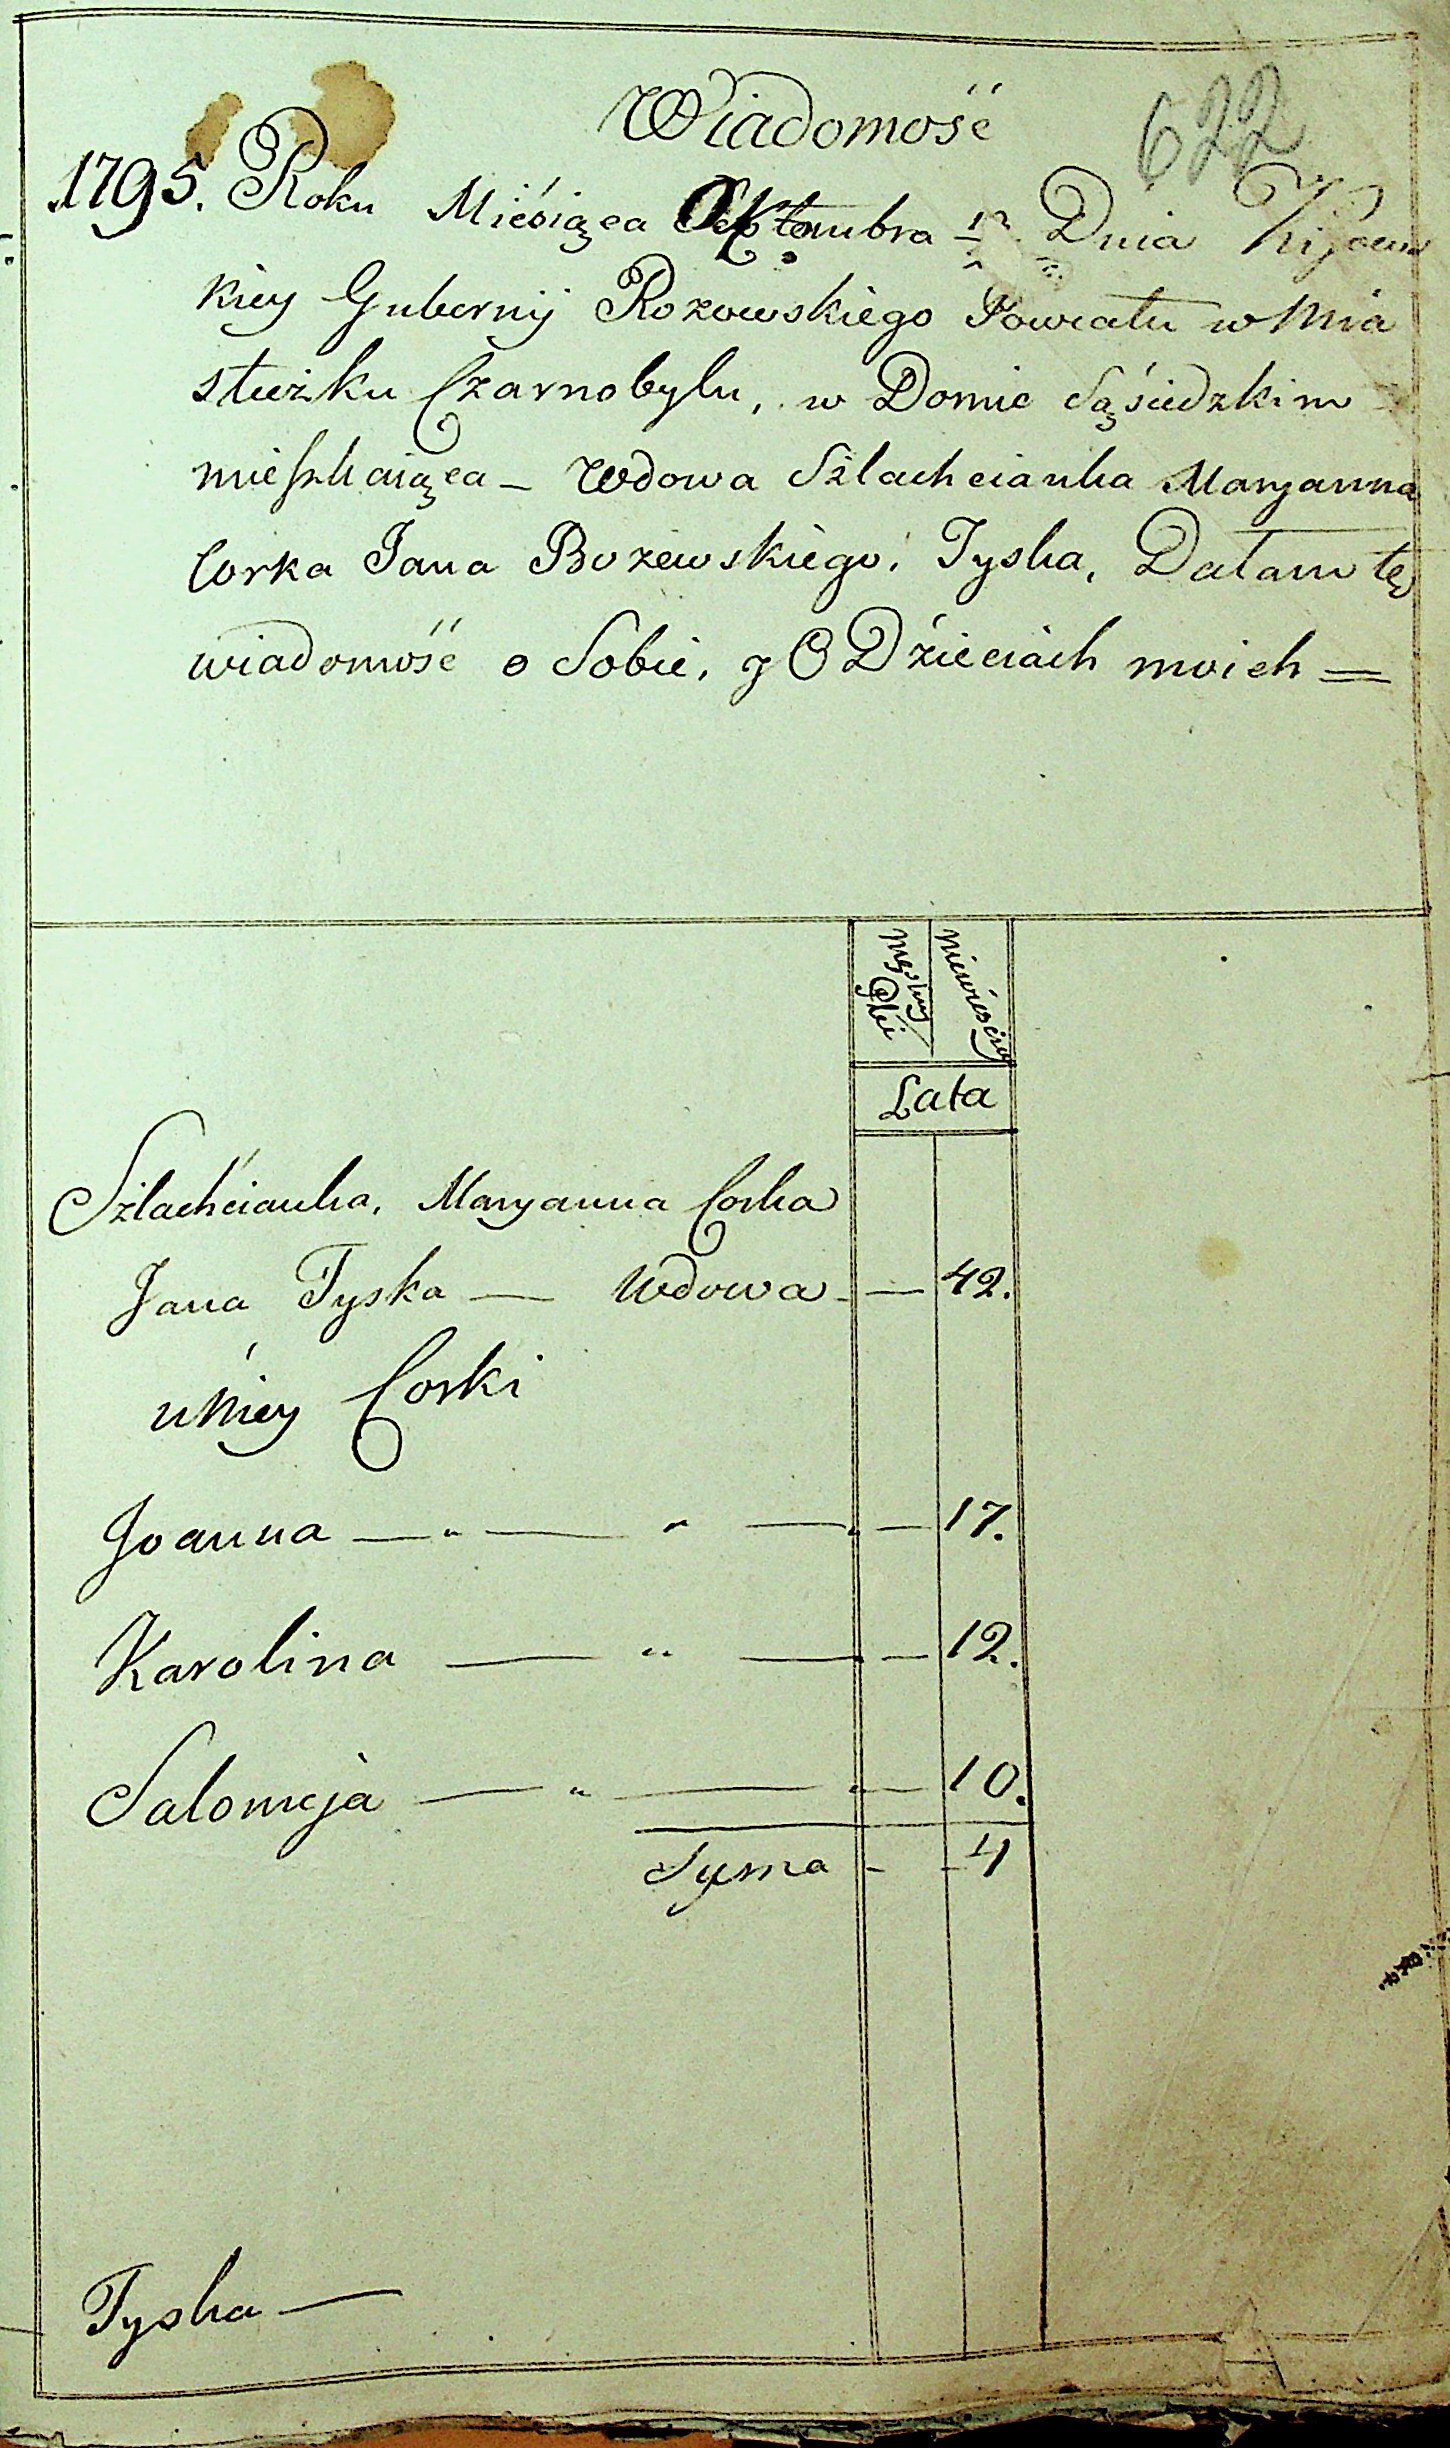 622
Wiadomość
1795. Roku Miésiąca Oktombra 12 Dnia Kijows
kiey Gubernij Rozowskiego Powiatu w Mia
steczku Czarnobylu, w Domie Sąsiedzkim
mieszkaiąca – Wdowa Szlachcianka Maryanna
Corka Jana Bozewskiego, Tyska, Dałam tę
wiadomość o Sobie, y O Dzieciach moich =
męskiey Płci
niewieściey
Lata
Szlachcianka, Maryanna Corka
Jana Tyska — Wdowa — 42.
u Niey Corki
Joanna — " — " — 17.
Karolina — " — 12.
Salomeja — " — 10.
Syma - - 4
Tyska —